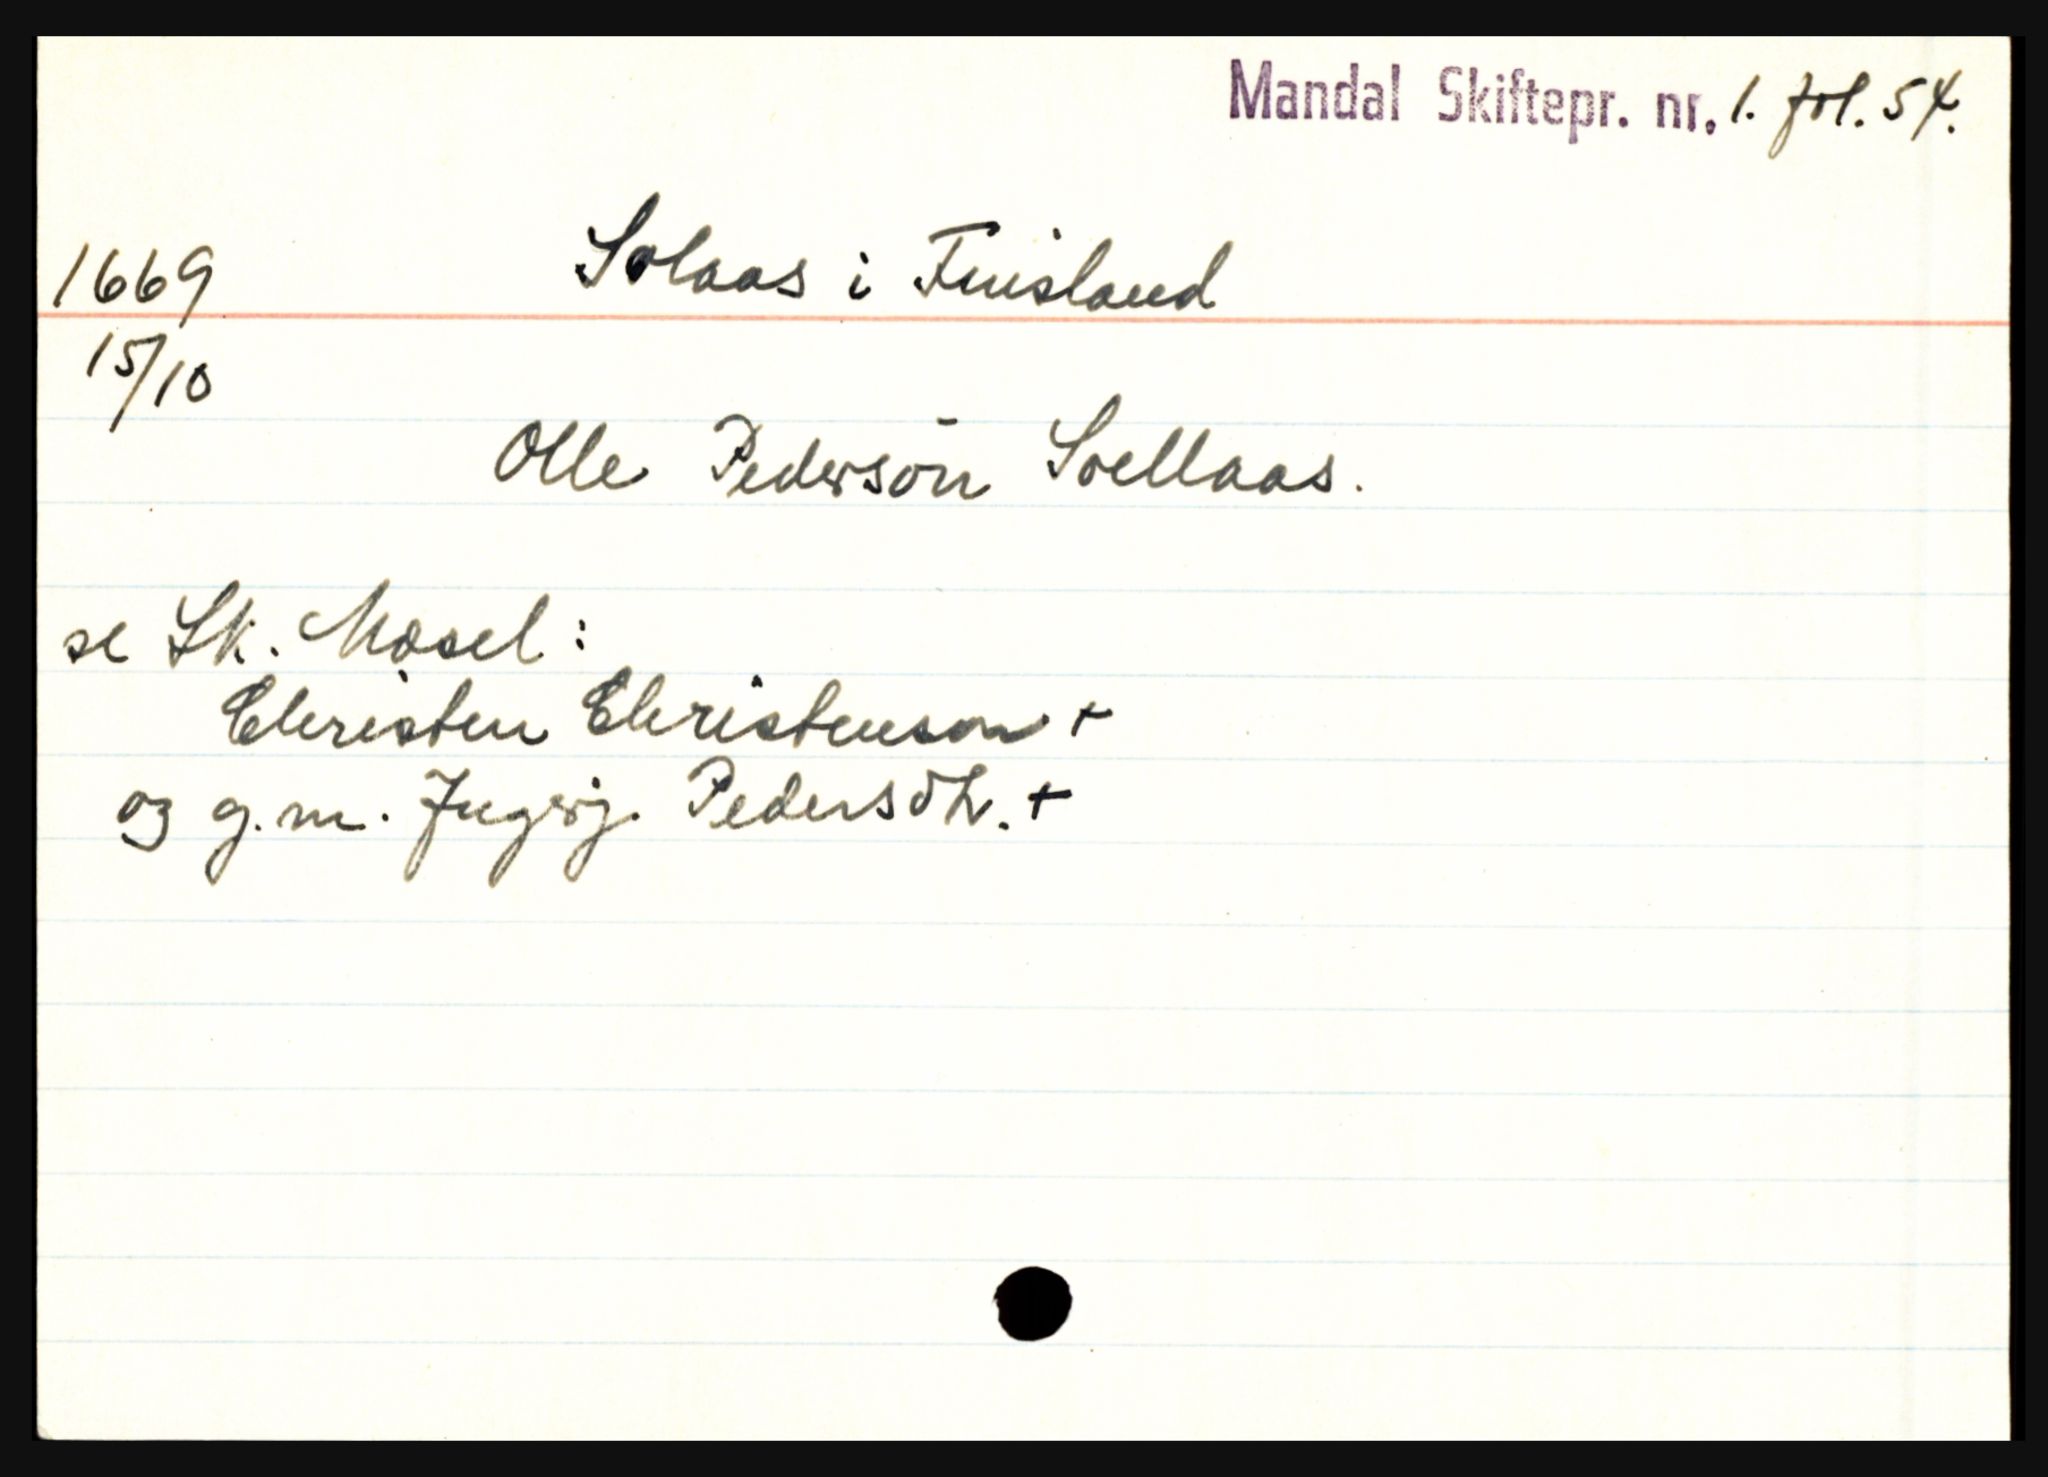 Mandal Skiftepr. nr. 1. fol. 54.
1669 Solaas i Finsland
15/10
Olle Pedersön Soellaas.
se Sk. Mosel:
Christen Christenson +
og g.m. Ingebj. Pedersdtr. +